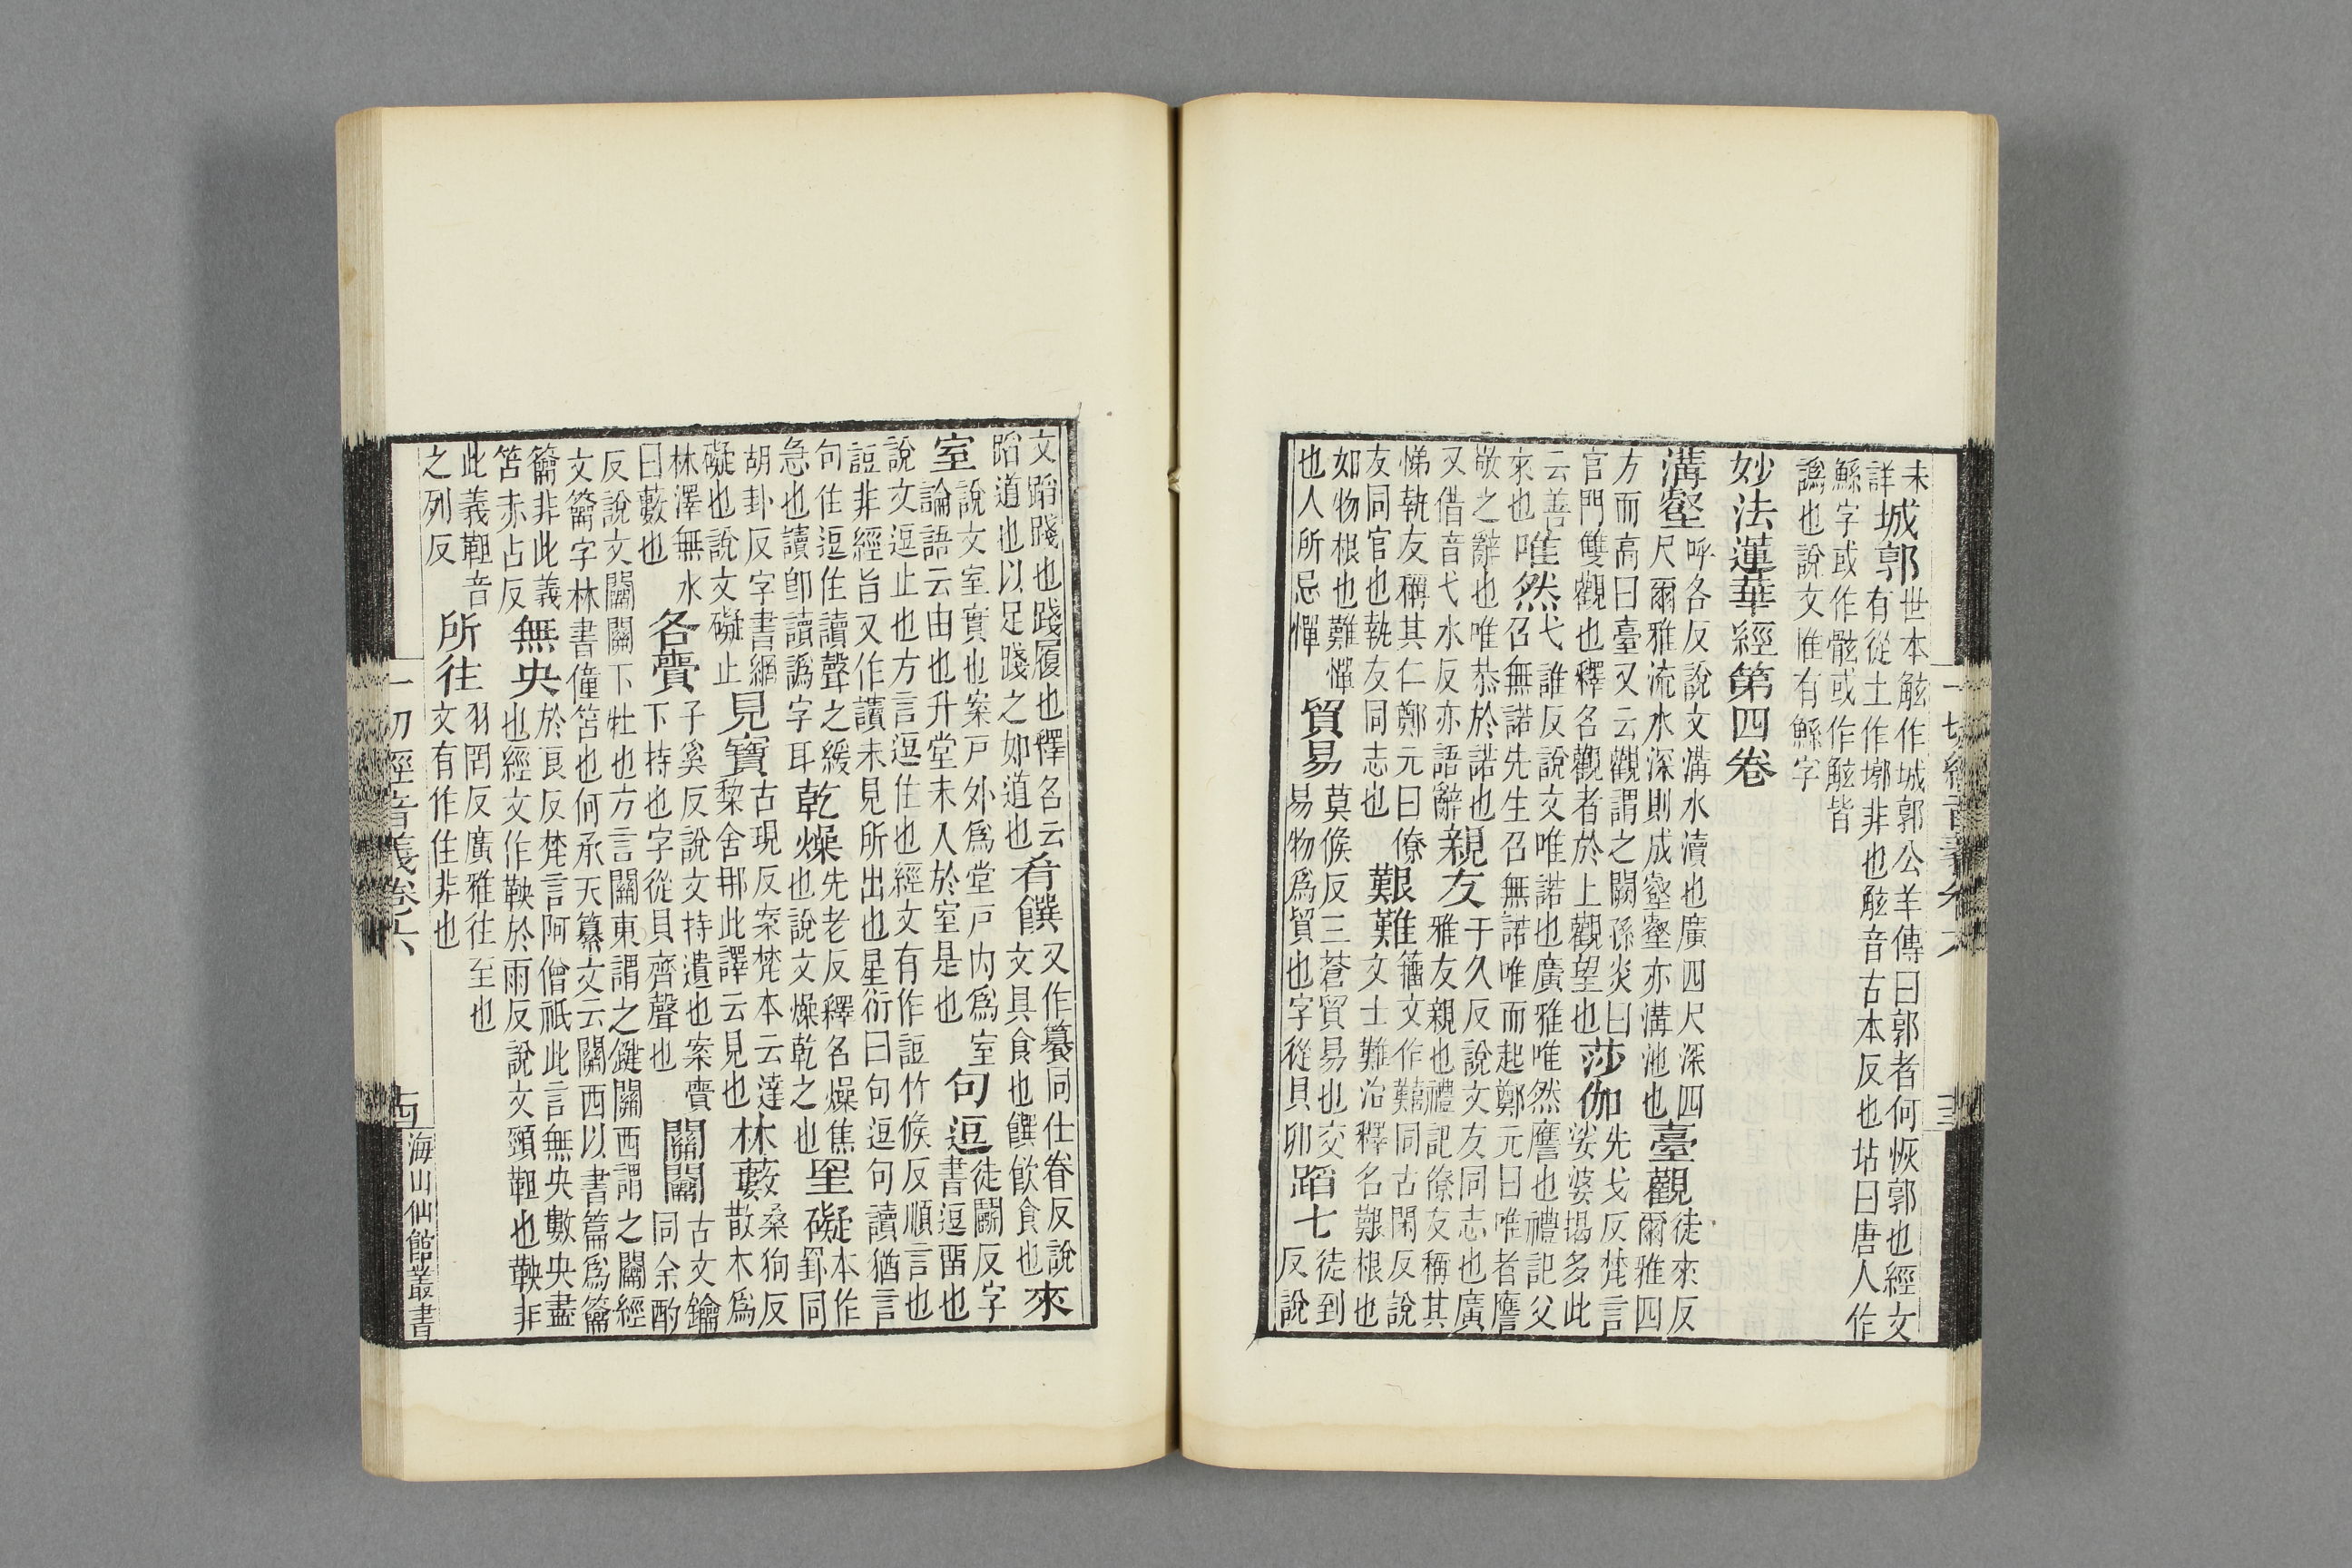 未詳城郭世本鮌作城郭公羊傳曰郭者何恢郭也經文有從土作墎非也鮌音古本反也坫曰唐人作
鯀字或作骸或作鮌皆譌也說文惟有鯀字
妙法蓮華經第四卷
溝壑呼各反說文溝水瀆也廣四尺深四尺爾雅流水深則成壑壑亦溝池也臺觀徒來反爾雅四
方而高曰臺又云觀謂之闕孫炎曰官門雙觀也釋名觀者於上觀望也莎伽先戈反梵言娑婆揭多此
云善來也唯然弋誰反說文唯諾也廣雅唯然譍也禮記父召無諾先生召無諾唯而起鄭元曰唯者譍
敬之辭也唯恭於諾也又借音弋水反亦語辭親友于久反說文友同志也廣雅友親也禮記僚友稱其
悌執友稱其仁鄭元曰僚友同官也執友同志也艱難籀文作囏同古閑反說文土難治釋名艱根也
如物根也難憚也人所忌憚貿易莫候反三蒼貿易也交易物爲貿也字從貝卯蹈七徒到反說
一切經音義卷六
十三
文蹈踐也踐履也釋名云蹈道也以足踐之如道也肴饌又作籑同仕眷反說文具食也饌飲食也來
室說文室實也案戸外爲堂戸內爲室論語云由也升堂未入於室是也句逗徒鬭反字書逗畱也
說文逗止也方言逗住也經文有作䛠竹候反順言也䛠非經旨又作讀未見所出也星衍曰句逗句讀猶言
句住逗住讀聲之緩急也讀卽讀譌字耳乾燥先老反釋名燥焦也說文燥乾之也罣礙本作罫同
胡卦反字書網礙也說文礙止見寶古現反案梵本云達棃舍郍此譯云見也林藪桑狗反散木爲
林澤無水曰藪也各賷子奚反說文持遺也案賷下持也字從貝齊聲也關闟古文鑰同余酌
反說文闟關下牡也方言關東謂之鍵關西謂之闟經文籥字林書僮笘也何承天纂文云關西以書篇爲籥
籥非此義笘赤占反無央於良反梵言阿僧祇此言無央數央盡也經文作鞅於兩反說文頸靼也鞅非
此義靼音之列反所往羽罔反廣雅往至也文有作住非也
一切經音義卷六
十四
海山仙館叢書